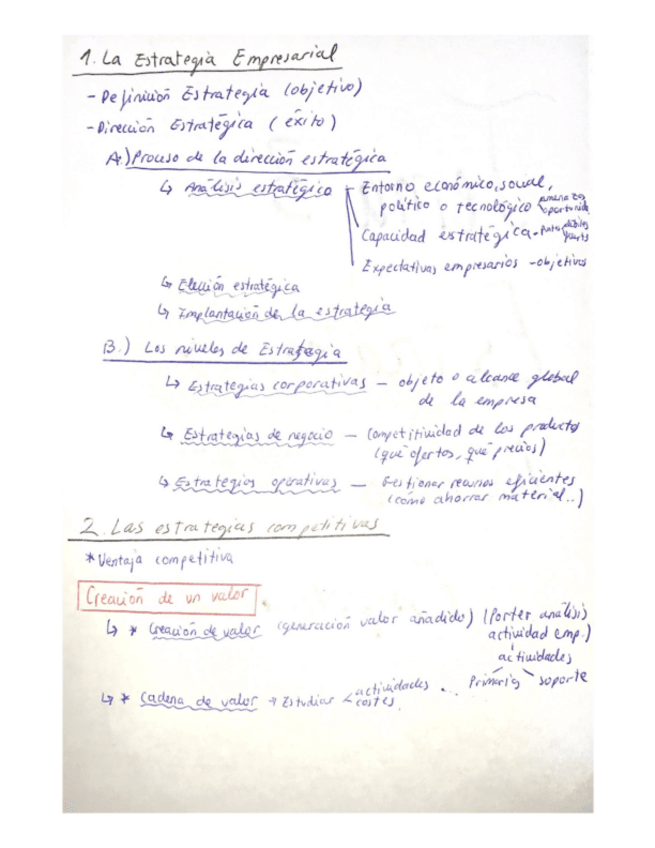 1. La Estrategia Empresarial
- Definición Estrategia (objetivo)
- Dirección Estratégica (éxito)
A.) Proceso de la dirección estratégica
↳ Análisis estratégico - Entorno económico, social,
político o tecnológico < amenazas oportunid.
Capacidad estratégica - Puntos débiles fuerts
Expectativas empresarios - objetivos
↳ Elección estratégica
↳ Implantación de la estrategia
B.) Los niveles de Estrategia
↳ Estrategias corporativas - objeto o alcance global
de la empresa
↳ Estrategias de negocio - Competitividad de los productos
(qué ofertas, qué precios)
↳ Estrategias operativas - Gestionar recursos eficientes
(cómo ahorrar material..)
2. Las estrategias competitivas
* Ventaja competitiva
Creación de un valor.
↳ * Creación de valor (generación valor añadido) (Porter análisis
actividad emp.)
actividades
Primaria soporte
↳ * Cadena de valor → Estudiar < actividades ...
costes.